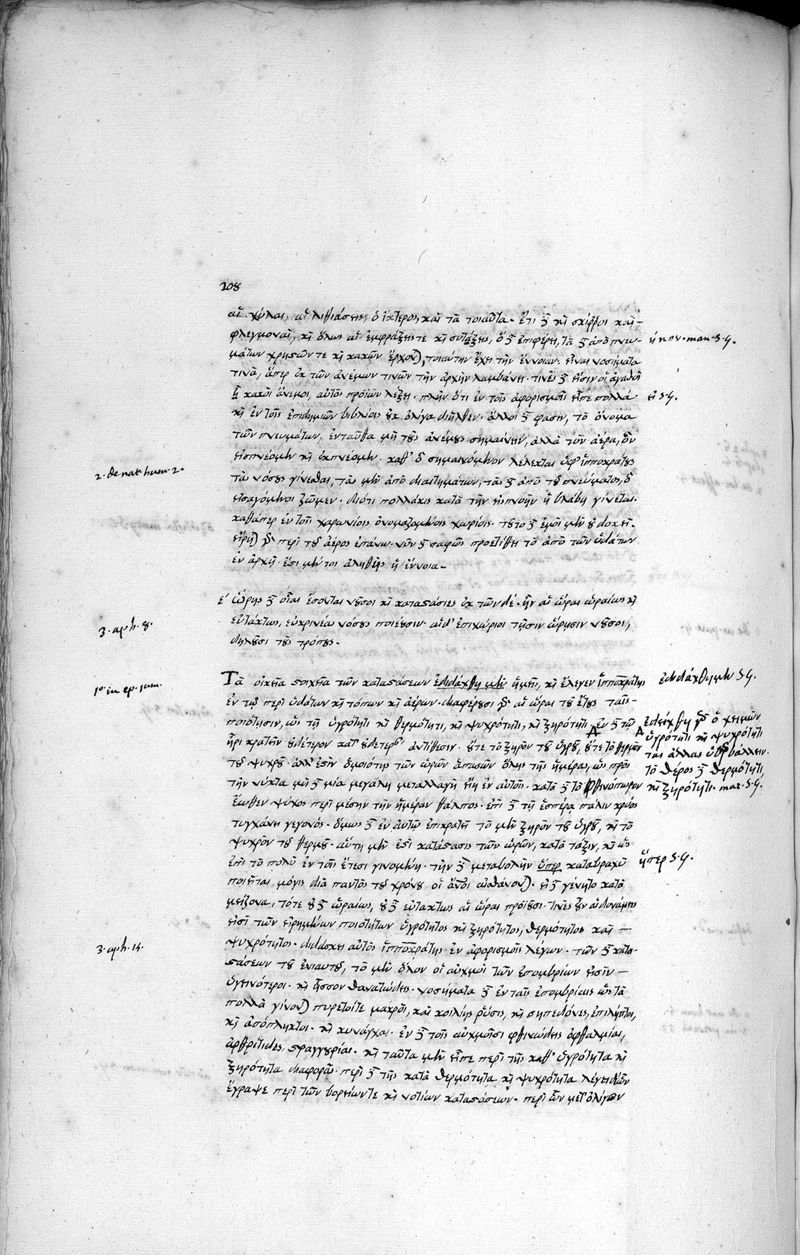 208
αἱ χολαὶ, αἱ λιθιάσεις, ὁ ἴκτερος, καὶ τὰ τοιαῦτα. ἔτι δὲ καὶ σκίρροι καὶ
φλεγμοναὶ, καὶ ὅλως αἱ ἐμφράξεις τε καὶ
μάτων χρηστῶν τε καὶ κακῶν ἔρχονται, τοιαύτην ἔχει τὴν ἔννοιαν. εἶναι νοσήματα
τινὰ, ἅπερ ἐκ τῶν ἀνέμων τινῶν τὴν ἀρχὴν λαμβάνει. τίνες δὲ εἰσὶν οἱ ἀγαθοὶ
ἢ κακοὶ ἄνεμοι, αὐτὸς προϊὼν λέξει. πλὴν ὅτι ἐν τοῖς ἀφορισμοῖς εἶπε πολλὰ
καὶ ἐν τοῖς ἐπιδημιῶν βιβλίοις οὐκ ὀλίγα διῆλθεν. ἄλλοι δὲ φασιν, τὸ ὄνομα
τῶν πνευμάτων, ἐνταῦθα μὴ τοὺς ἀνέμους σημαίνειν, ἀλλὰ τὸν ἀέρα, ὃν
εἰσπνέομεν καὶ ἐκπνέομεν. καθ' ὃ σημαινόμενον λέλεκται ὑφ' ἱπποκράτους
2. de nat hum. 2.
τὰς νόσους γίνεσθαι, τὰς μὲν ἀπὸ διαιτημάτων, τὰς δὲ ἀπὸ τοῦ πνεύματος, ὃ
εἰσαγόμενοι ζῶμεν. διότι πολλάκις κατὰ τὴν εἰσπνοὴν ἡ βλάβη γίνεται.
καθάπερ ἐν τοῖς χαρωνίοις ὀνομαζομένοις χωρίοις. τοῦτο δὲ ἐμοὶ μὲν οὐ δοκεῖ.
εἴρηται γὰρ περὶ τοῦ ἀέρος ἐπάνω. νῦν δὲ σαφῶς προσέθηκε τὸ ἀπὸ τῶν ὑδάτων
ἐν ἀρχῇ. ἔστι μέντοι ἀληθὴς ἡ ἔννοια.
ὥρης δὲ οἷαι ἔσονται νοῦσοι καὶ καταστάσιες ἐκ τῶν δέ. ἢν αἱ ὧραι ὡραίως καὶ
3. aph. 8.
εὐτάκτως, εὐκρινέας νόσους ποιέουσιν. αἱ δ' ἐπιχώριοι τῇσιν ὥρῃσιν νοῦσοι,
δηλοῦσι τοὺς τρόπους.
1° in ep. com.
Τὰ οἰκεῖα στοιχεῖα τῶν καταστάσεων ἐδιδάχθη μὲν ἡμῖν, καὶ ἔλεγεν ἱπποκράτης
ἐν τῷ περὶ ὑδάτων καὶ τόπων καὶ ἀέρων. διαφέρουσι γὰρ αἱ ὧραι τοῦ ἔτους ταῖς
ποιότησιν, ὡς τῇ ὑγρότητι καὶ θερμότητι, καὶ ψυχρότητι, καὶ ξηρότητι. ἐν δὲ τῷ
ἦρι κρατεῖν οὐδέτερον κατ' οὐδετέραν ἀντίθεσιν. οὔτε τὸ ξηρὸν τοῦ ὑγροῦ, οὔτε τὸ θερμὸν
τοῦ ψυχροῦ. ἀλλ' ἔστιν ὁμοιότης τῶν ὡρῶν ἁπασῶν ὅλης τῆς ἡμέρας, ὡς πρὸς
τὴν νύκτα μὴ δὲ μία μεγάλη μεταλλαγὴ ἔνι ἐν αὐτοῖς. κατὰ δὲ τὸ φθινόπωρον
ἕωθεν ψύχος περὶ μέσην τὴν ἡμέραν θάλπος. ἐπὶ δὲ τῇ ἑσπέρᾳ πάλιν κρύος
τυγχάνει γεγονός. ὅμως δὲ ἐν αὐτῷ ἐπικρατεῖ τὸ μὲν ξηρὸν τοῦ ὑγροῦ, καὶ τὸ
ψυχρὸν τοῦ θερμοῦ. αὕτη μὲν ἐστὶ κατάστασις τῶν ὡρῶν, κατὰ τάξιν, καὶ ὡς
ἐπὶ τὸ πολὺ ἐν τοῖς ἔτεσι γινομένη. τὴν δὲ μεταβολὴν ὅπερ καταβραχὺ
ποιεῖται, μόγις διὰ παντὸς τοῦ χρόνου οἱ ἄνθρωποι αἰσθάνονται. εἰ δὲ γένητο κατὰ
μείζονα, τότε οὐδὲ ὡραίως, οὐδὲ εὐτάκτως αἱ ὧραι προΐασι. τίνες οὖν αἱ δυνάμεις
εἰσὶ τῶν εἰρημένων ποιοτήτων ὑγρότητος καὶ ξηρότητος, θερμότητος καὶ
3. aph. 15.
ψυχρότητος. διδάσκει αὐτὸς ἱπποκράτης ἐν ἀφορισμοῖς λέγων. τῶν δὲ κατα-
στάσεων τοῦ ἐνιαυτοῦ, τὸ μὲν ὅλον οἱ αὐχμοὶ τῶν ἐπομβρίων εἰσὶν
ὑγιεινότεροι. καὶ ἧσσον θανατώδεις. νοσήματα δὲ ἐν ταῖς ἐπομβρίαις ὡς τὰ
πολλὰ γίνονται πυρετοί τε μακροὶ, καὶ κοιλίης ῥύσεις, καὶ σηπεδόνες, ἐπίληπτοι,
καὶ ἀπόπληκτοι. καὶ κυνάγχαι. ἐν δὲ τοῖς αὐχμοῖσι φθινώδεις ὀφθαλμίαι,
ἀρθρίτιδες, στραγγουρίαι. καὶ ταῦτα μὲν εἶπε περὶ τῆς καθ' ὑγρότητα καὶ
ξηρότητα διαφορᾶς. περὶ δὲ τῆς κατὰ θερμότητα καὶ ψυχρότητα
ἔγραψε περὶ τῶν βορείων τε καὶ νοτίων καταστάσεων. περὶ ὧν μετ' ὀλίγον
ἐδιδάχθημεν
ἐδείχθη γὰρ ὁ χειμὼν
ὑγρότητι καὶ ψυχρότητι
τὰς ἄλλας ὑπερβάλλειν.
τὸ θέρος δὲ θερμότητι,
καὶ ξηρότητι.
ἥπερ